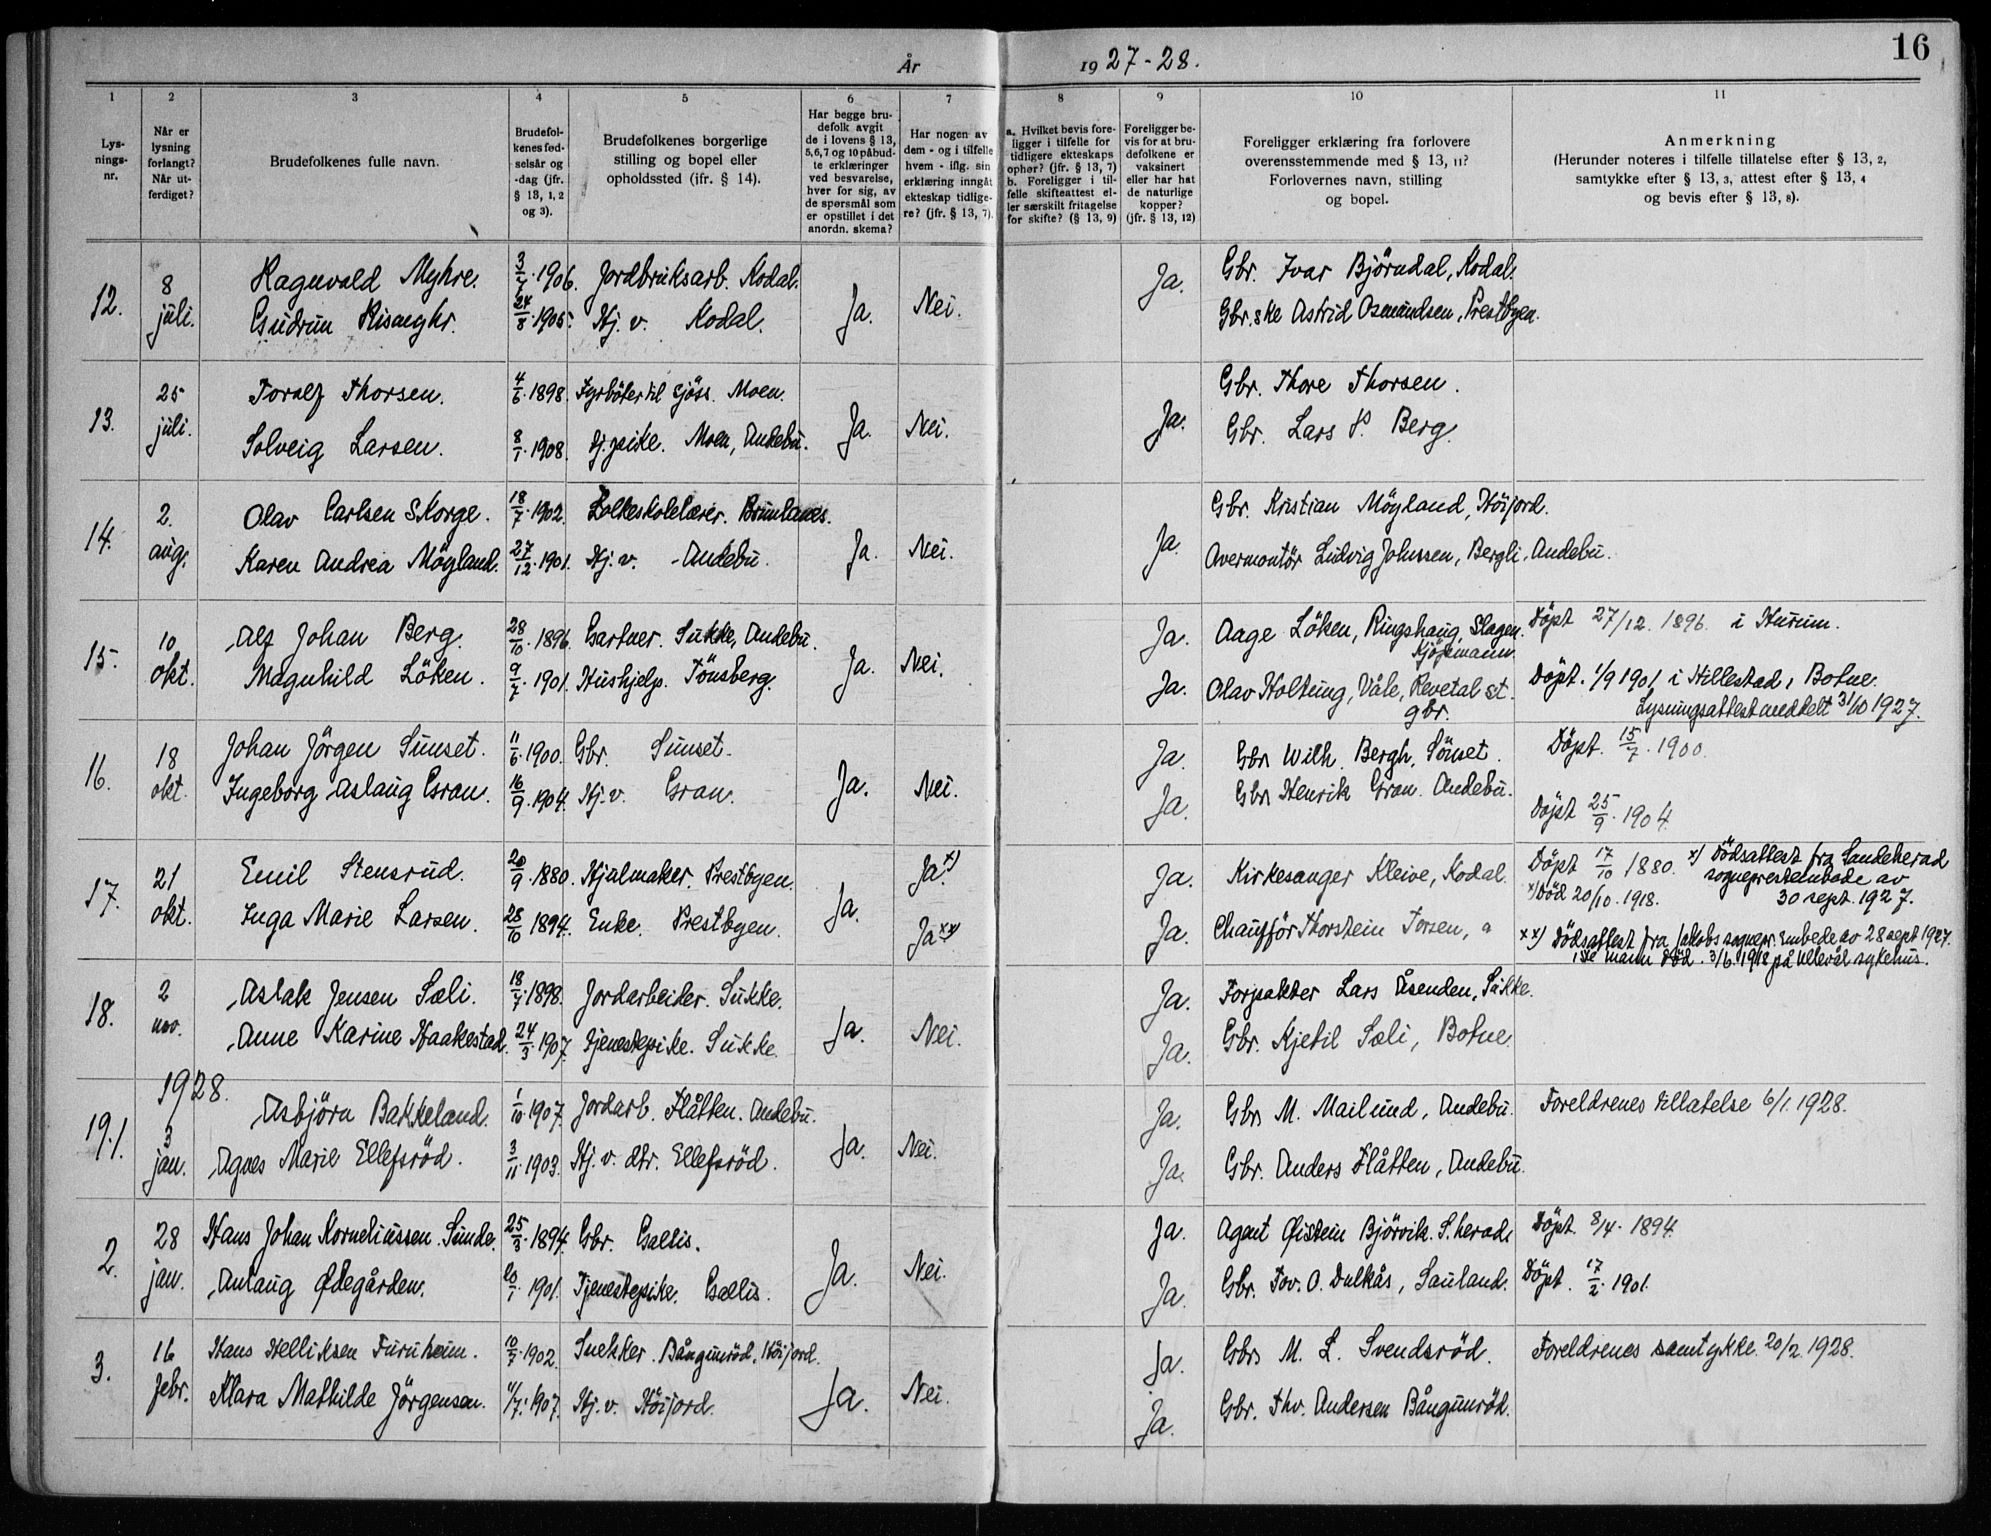 År 1927-28.
16
1 2 3 4 5 6 7 8 9 10 11
Lysningsnr.
Når er lysning forlangt? Når utferdiget?
Brudefolkenes fulle navn.
Brudefolkenes fødselsår og -dag (jfr. § 13, 1, 2 og 3).
Brudefolkenes borgerlige stilling og bopel eller opholdssted (ifr. § 14).
Har begge brudefolk avgit de i lovens § 13, 5, 6, 7 og 10 påbudte erklæringer ved besvarelse, hver for sig, av de spørsmål som er opstillet i det anordn. skema?
Har nogen av dem - og i tilfelle hvem - iflg. sin erklæring inngåt ekteskap tidligere? (jfr. § 13, 7).
a. Hvilket bevis foreligger i tilfelle for tidligere ekteskaps ophør? (jfr. § 13, 7) b. Foreligger i tilfelle skifteattest eller særskilt fritagelse for skifte? (§ 13, 9)
Foreligger bevis for at brudefolkene er vaksinert eller har hat de naturlige kopper? (jfr. § 13, 12)
Foreligger erklæring fra forlovere overensstemmende med § 13, 11? Forlovernes navn, stilling og bopel.
Anmerkning (Herunder noteres i tilfelle tillatelse efter § 13, 2, samtykke efter § 13, 3, attest efter § 13, 4 og bevis efter § 13, 8).
12. 8 juli. Ragnvald Myhre. 1906. Jordbruksarb. Kodal. Ja. Nei. Ja. Gbr. Ivar Björndal, Kodal.
Gudrun Risanghr. 24/8. 1905. Hj. v. Kodal. Gbr.ske Astrid Osmundsen, Prestbyen.
13. 25 juli. Toralf Thorsen. 4/6. 1898. Fyrböter til sjöss. Moen. Ja. Nei. Ja. Gbr. Thore Thorsen.
Solveig Larsen. 8/1. 1908. Tj. pike. Moen, Andebu. Gbr. Lars P. Berg.
14. 2. aug. Olav Carlsen Skorge. 18/7. 1902. Folkeskolelærer. Brunlanes. Ja. Nei. Ja. Gbr. Kristian Möyland, Höijord.
Karen Andrea Möyland. 27/12. 1901. Hj. v. Andebu. Avermontör Ludvig Johnssen, Bergli, Andebu.
15. 10 okt. Alf Johan Berg. 28/10. 1896. Gartner. Sukke, Andebu. Ja. Nei. Ja. Aage Löken, Ringshaug, Slagen. Sjömann. Döpt 27/12. 1896 i Hurum.
Magnhild Löken. 9/7. 1901. Hushjelp. Tönsberg. Ja. Olav Holtung, Våle, Revetal st. gbr. Döpt. 1/9 1901 i Hillestad, Botne.
Lysningsattest meddelt 31/10 1927.
16. 18 okt. Johan Jörgen Sunset. 11/6. 1900. Gbr. Sunset. Ja. Nei. Ja. Gbr. Wilh. Bergh, Sönset. Döpt. 15/7. 1900.
Ingeborg Aslaug Gran. 16/9. 1904. Hj. v. Gran. Ja. Gbr. Henrik Gran. Andebu. Döpt 25/9. 1904.
17. 21 okt. Emil Stensrud. 20/9. 1880. Hjulmaker. Prestbyen. Ja. Ja. x) Ja. Kirkesanger Kleive, Kodal. Döpt 17/10 1880. x) Dödsattest fra Sandeherad
sogneprestembede av
x) Död 20/10. 1918. 30 sept. 1927.
Inga Marie Larsen. 28/10 1894. Enke. Prestbyen. Ja xx) Ja. Chaufför Thorstein Torsen, xx) Dödsattest fra Jakobs sognepr. Embede av 28 sept 1927.
1ste mann död. 3/6. 1918 på Ullevål sykehus.
18. 2 nov. Aslak Jensen Sæli. 1898. Jordarbeider. Sukke. Ja. Nei. Ja. Forpakter Lars Åsenden, Sukke.
Anne Karine Haakestad. 24/3. 1907. Tjenestepike. Sukke. Ja. Gbr. Kjetil Sæli, Botne.
1928.
19.1. 3 jan. Asbjörn Bakkeland. 1/10. 1907. Jordarb. Flåtten. Andebu. Ja. Nei. Ja. Gbr. M. Mailund, Andebu. Foreldrenes tillatelse 6/1. 1928.
Agnes Marie Ellefsröd. 3/11. 1903. Hj. v. dtr. Ellefsröd. Ja. Gbr. Anders Flåtten, Andebu.
2. 28 jan. Hans Johan Korneliussen Sunde. 25/3. 1894. Gbr. Gallis. Ja. Nei. Ja. Agent Øistein Björvik. S.herad. Döpt. 8/4. 1894.
Anlaug Ødegården. 20/1. 1901. Tjenestepike. Gallis. Ja. Gbr. Tov. O. Dalkås, Sauland. Döpt. 17/2. 1901.
3. 16 febr. Hans Helliksen Furuheim. 10/7. 1902. Snekker. Bångunröd, Höijord. Ja. Nei. Ja. Gbr. M. L. Svendsröd. Foreldrenes samtykke. 20/2. 1928.
Klara Mathilde Jörgensen. 11/7. 1907. Hj. v. Höijord. Ja. Gbr. Thv. Andersen Bångunröd.